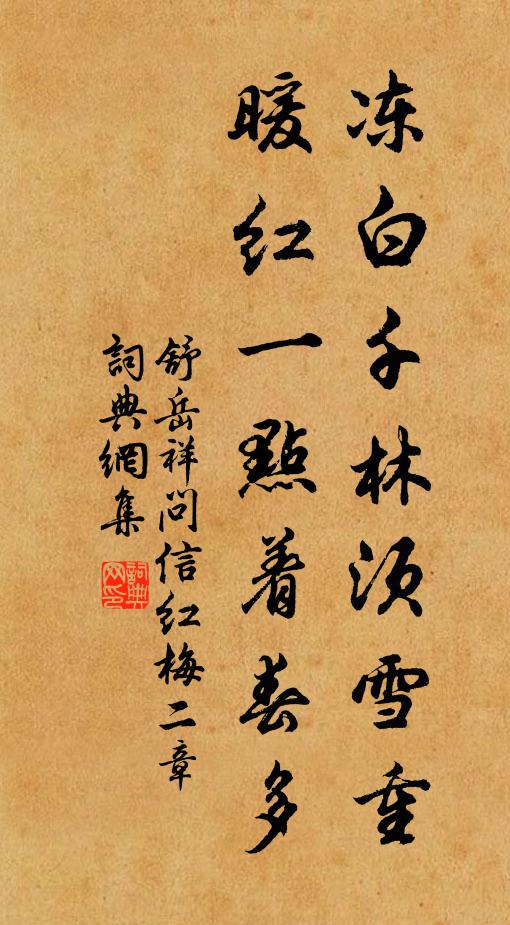 冻白千林须雪重
暖红一點着春多
舒岳祥问信红梅二章
詞典網集
詞典網印